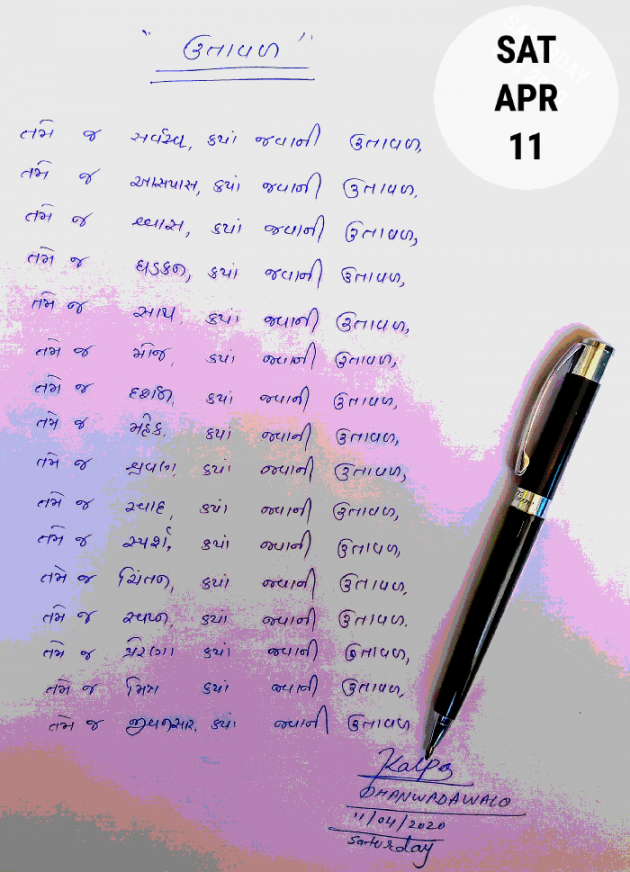 SAT
APR
11
" ઉતાવળ "
તમે જ સર્વસ્વ, ક્યાં જવાની ઉતાવળ,
તમે જ આસપાસ, ક્યાં જવાની ઉતાવળ,
તમે જ શ્વાસ, ક્યાં જવાની ઉતાવળ,
તમે જ ધડકન, ક્યાં જવાની ઉતાવળ,
તમે જ સાથ, ક્યાં જવાની ઉતાવળ,
તમે જ મોજ, ક્યાં જવાની ઉતાવળ,
તમે જ દર્શન, ક્યાં જવાની ઉતાવળ,
તમે જ મહેક, ક્યાં જવાની ઉતાવળ,
તમે જ શ્રવણ, ક્યાં જવાની ઉતાવળ,
તમે જ સ્વાદ, ક્યાં જવાની ઉતાવળ,
તમે જ સ્પર્શ, ક્યાં જવાની ઉતાવળ,
તમે જ ચિંતન, ક્યાં જવાની ઉતાવળ,
તમે જ સ્વપ્ન, ક્યાં જવાની ઉતાવળ.
તમે જ પ્રેરણા ક્યાં જવાની ઉતાવળ,
તમે જ મિત્ર ક્યાં જવાની ઉતાવળ,
તમે જ જીવનસાર, ક્યાં જવાની ઉતાવળ
Kalpa
DHANWADAWALA
11/04/2020
Saturday